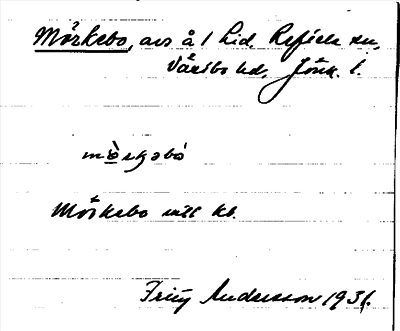 Mörkebo, avs å 1 Lid, Reftele sn,
Västbo hd, Jönk. l.
mörkebo
Mörkebo enl kb.
Fritz Andersson 1931.